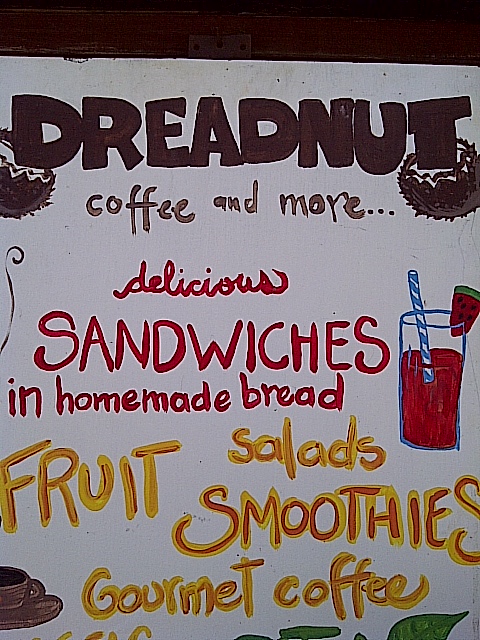 DREADNUT
coffee and more...
delicious
SANDWICHES
in homemade bread
FRUIT salads
SMOOTHIES
Gourmet coffee